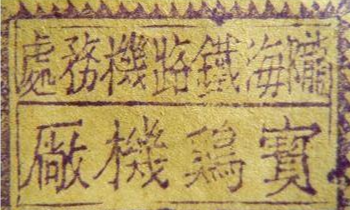 隴海鐵路機務處
寶鷄機廠